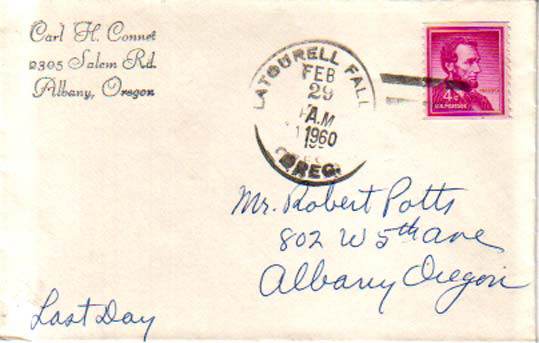 Carl H. Connet
2305 Salem Rd.
Albany, Oregon
LATOURELL FALL
FEB
29
A.M
1960
OREG.
4¢
U.S. POSTAGE
Mr. Robert Potts
802 W 5th ave
Albany Oregon
Last Day